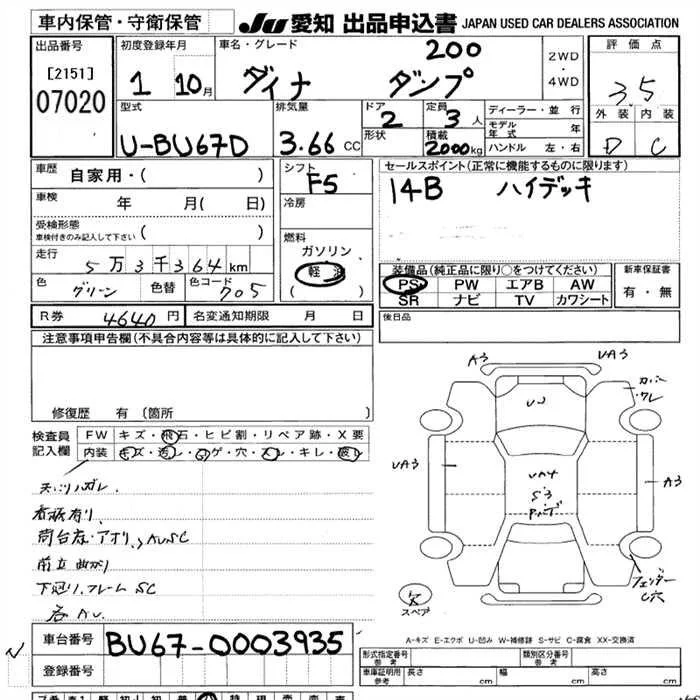 車内保管・守衛保管 JU 愛知 出品申込書 JAPAN USED CAR DEALERS ASSOCIATION
出品番号
[2151]
07020
初度登録年月
1 10月
車名・グレード
200
ダイナ ダンプ
2WD
・
4WD
評価点
3.5
外装 内装
D C
型式
U-BU67D
排気量
3.66 CC
ドア
2
形状
定員
3人
積載
2000kg
ディーラー・並行
モデル年式 年
ハンドル 左・右
車歴
自家用・( )
車検 年 月( 日)
受検形態
車検付きのみ記入して下さい ( )
走行
5万3千364km
色
グリーン
色替
色コード
705
シフト
F5
冷房
燃料
ガソリン
軽油
( )
セールスポイント(正常に機能するものに限ります)
14B ハイデッキ
装備品(純正品に限り○をつけてください)
PS PW エアB AW
SR ナビ TV カワシート
新車保証書
有・無
後日品
R券 4640円
名変通知期限 月 日
注意事項申告欄(不具合内容等は具体的に記入して下さい)
修復歴 有 (箇所 )
検査員記入欄
FW キズ・飛石・ヒビ割・リペア跡・X要
内装 キズ・汚レ・コゲ・穴・スレ・キレ・破レ
天バリハガレ.
看板有り.
荷台床・アオリ、AUSC
前立曲がり
下廻り.フレームSC
各AU.
A3
UA3
カバーワレ
UA3
UA4
S3
A3
フェンダーC穴
スペア
A-キズ E-エクボ U-凹み W-補修跡 S-サビ C-腐食 XX-交換済
車台番号
BU67-0003935
登録番号
形式指定番号
参考
類別区分番号
参考
車庫証明用
参考
長さ cm
幅 cm
高さ cm